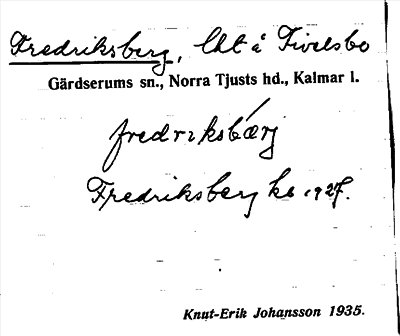 Fredriksberg, lht å Tivelsbo
Gärdserums sn., Norra Tjusts hd., Kalmar l.
fredrɩksbǽrj
Fredriksberg kb 1927.
Knut-Erik Johansson 1935.